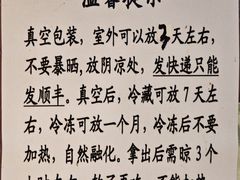 温馨提示
真空包装，室外可以放3天左右，
不要暴晒，放阴凉处，发快递只能
发顺丰。真空后，冷藏可放7天左
右，冷冻可放一个月，冷冻后不要
加热，自然融化。拿出后需晾3个